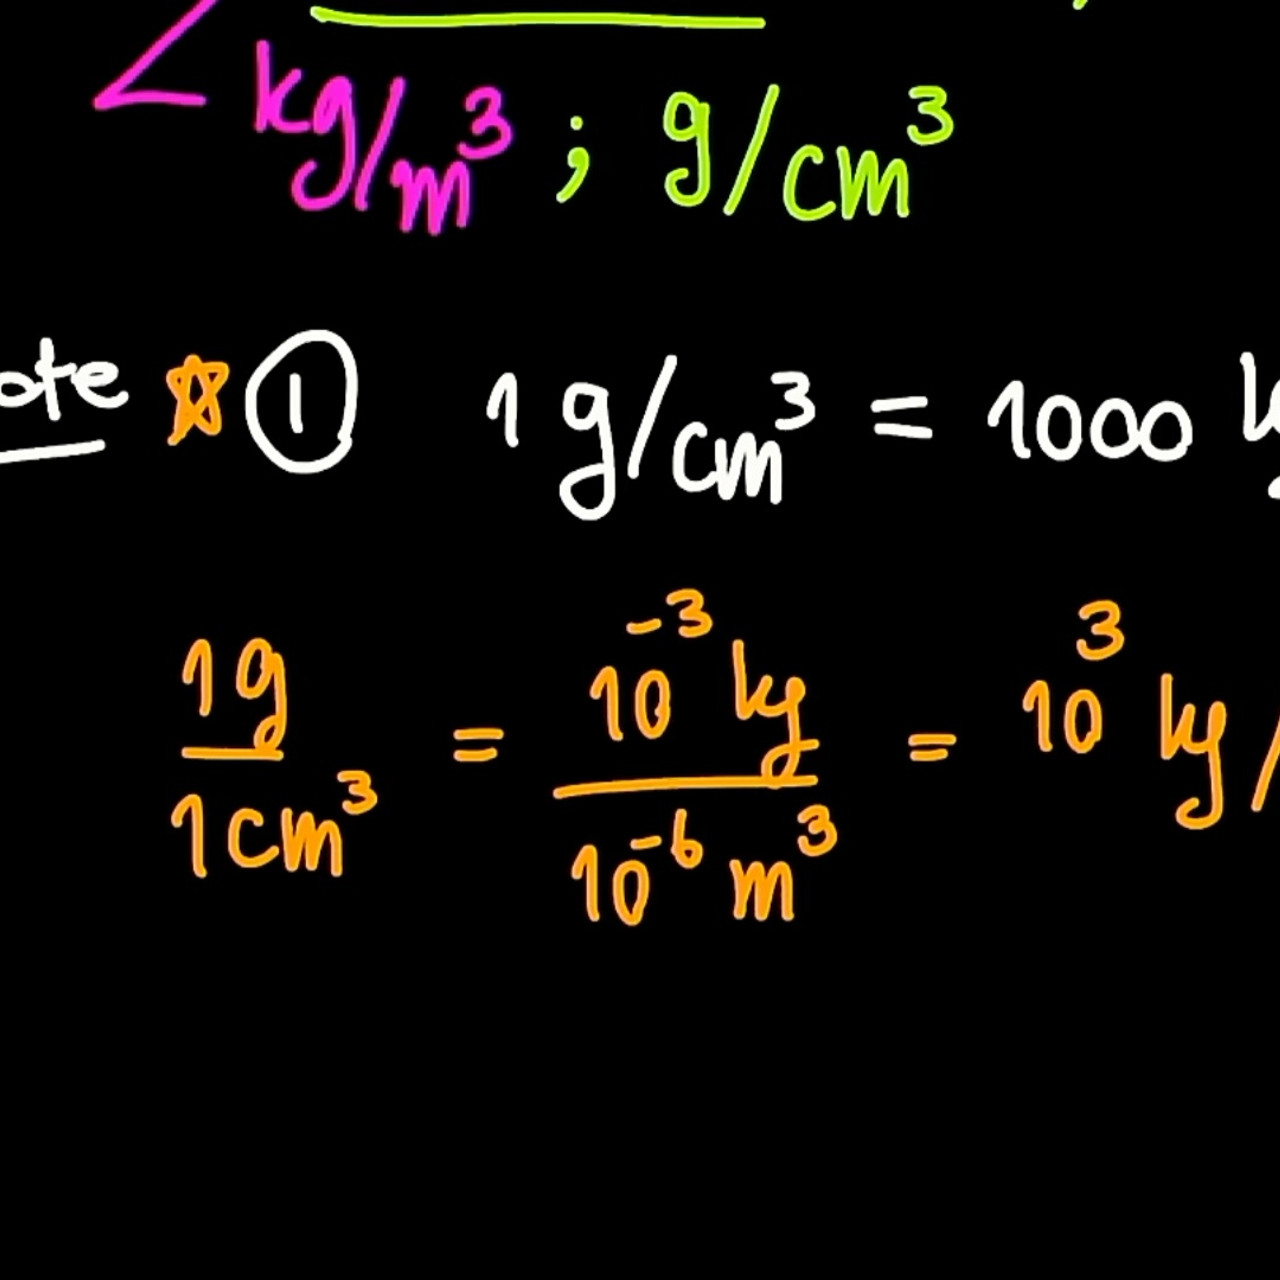 kg/m³ ; g/cm³
ote ☆ ① 1 g/cm³ = 1000 k
1g / 1cm³ = 10⁻³ kg / 10⁻⁶ m³ = 10³ kg /